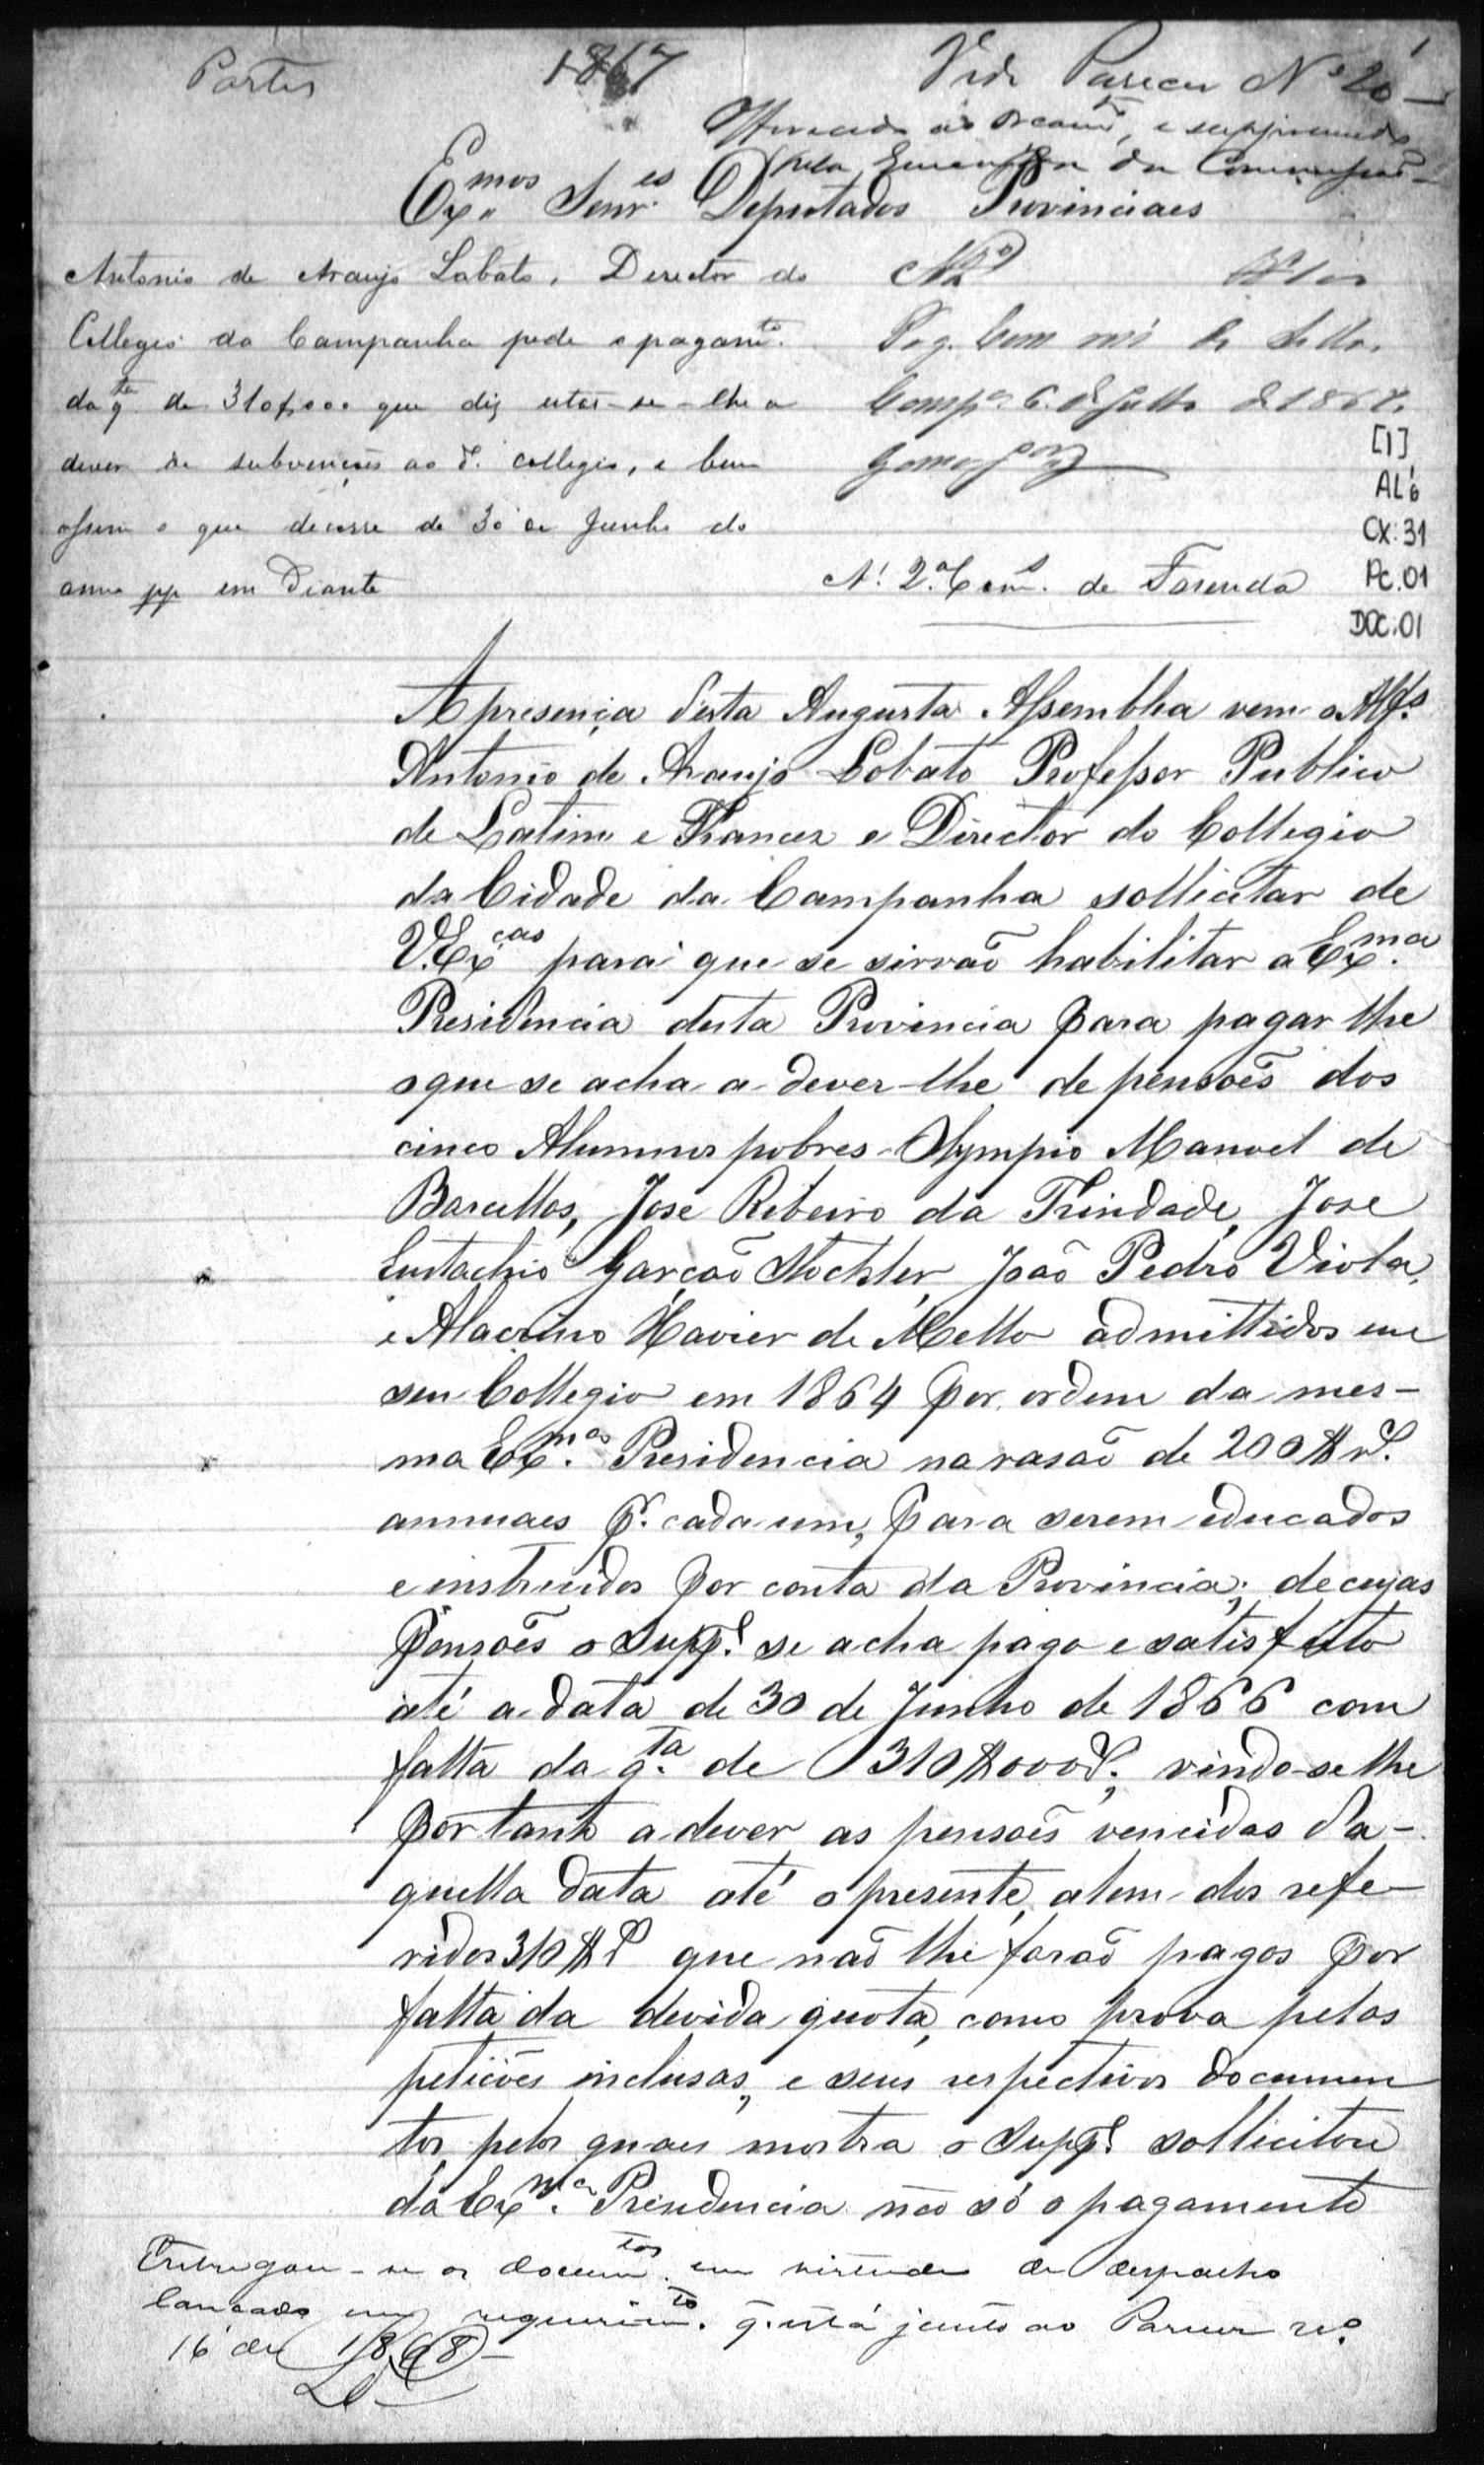 Partes 1867 Vide Parecer Nº 20
Offerecido ao Orcamto, e supprimido
pela Emenda da Commissão
Exmos Senres Deputados Provinciaes
Antonio de Araujo Lobato, Director do
Collegio da Campanha pede o pagamto
da qta de 310$000 que diz estar-se-lhe a
dever de subvenções ao dº collegio, e bem
assim o que decorre de 30 de Junho do
anno pp em diante
Nº
Pg. cem reis de Sello.
Campª 6 de Julho de 1867.
[1]
AL6
CX:31
PC.01
DOC.01
A' 2ª Comm. de Fasenda
A presença desta Augusta Assemblea vem o Alfs
Antonio de Araujo Lobato Professor Publico
de Latim e Francez e Director do Collegio
da Cidade da Campanha sollicitar de
V.Excas para que se sirvaõ habilitar a Exma
Presidencia desta Provincia para pagar lhe
o que se acha a dever-lhe de pensoẽs dos
cinco Alumnos pobres Olympio Manoel de
Barcellos, José Ribeiro da Trindade, Jose
Eustachio Garçaõ Stockler, Joaõ Pedro Viola,
e Alacrino Xavier de Mello admittidos em
seu Collegio em 1864 por ordem da mes-
ma Exma Presidencia na rasaõ de 200$rs.
annuaes pr. cada um, para serem educados
e instruidos por conta da Provincia; de cujas
pensoẽs o Suppe se acha pago e satisfeito
até a data de 30 de Junho de 1866 com
falta da qta de 310$000rs; vindo-se lhe
por tanto a dever as pensoẽs vencidas da-
quella data até o presente, alem dos refe-
ridos 310$rs que naõ lhe foraõ pagos por
falta da devida quota, como prova pelas
petiçoẽs inclusas, e seus respectivos documen
tos, pelos quaes mostra o Suppe sollicitou
da Exma Presidencia não só o pagamento
Entregou-se os documtos em virtude de despacho
lançado em requerimto q. está junto ao Parecer nº
16 de 1868